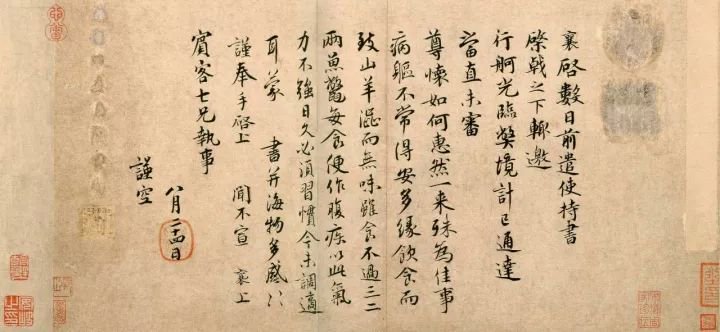 襄啓數日前遣使持書
棨戟之下輙邀
行舸光臨弊境計已通達
當直未審
尊懷如何惠然一来殊為佳事
病軀不常得安多緣飲食而
致山羊澁而無味雖食不過三二
兩魚鱉每食便作腹疾以此氣
力不強日久必須習慣今未調適
耳蒙 書并海物多感〻
謹奉手啓上 聞不宣 襄上
賓客七兄執事
八月二十四日
謹空